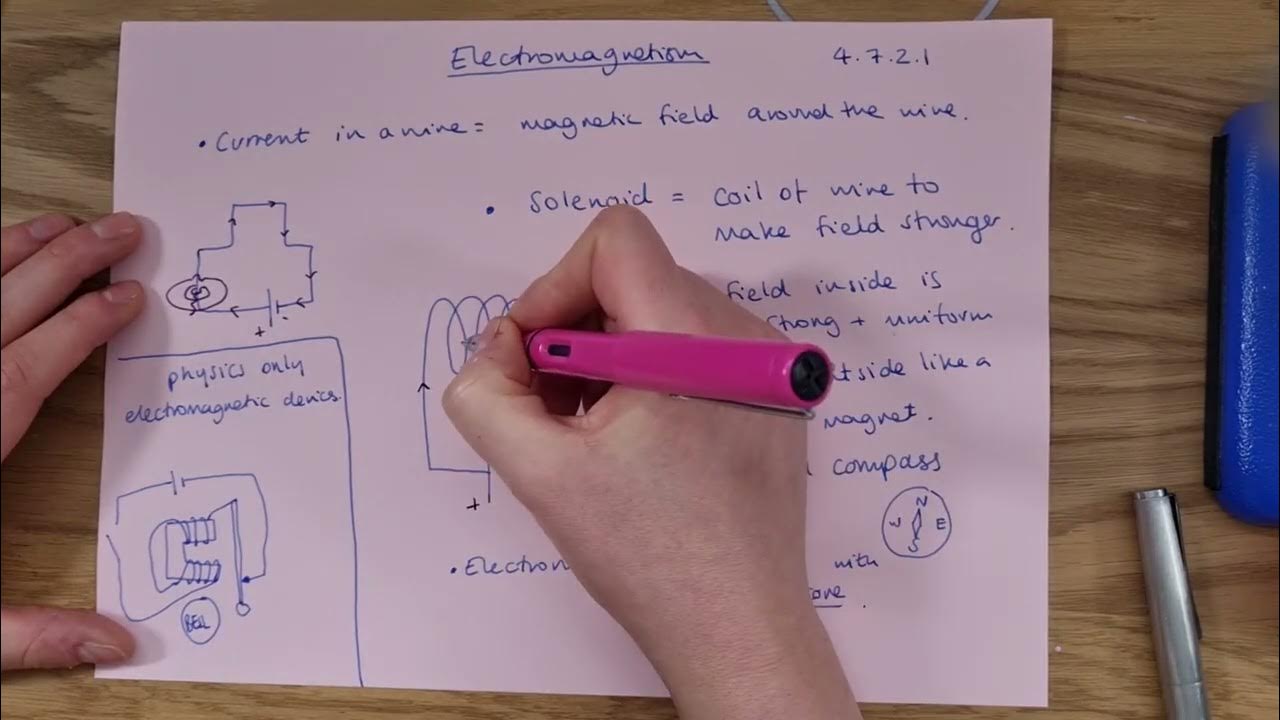 Electromagnetism 4.7.2.1
• Current in a wire = magnetic field around the wire.
• Solenoid = coil of wire to
make field stronger.
field inside is
strong + uniform
like a
magnet.
compass
N
W E
S
+ -
physics only
electromagnetic devices.
+
BELL
with